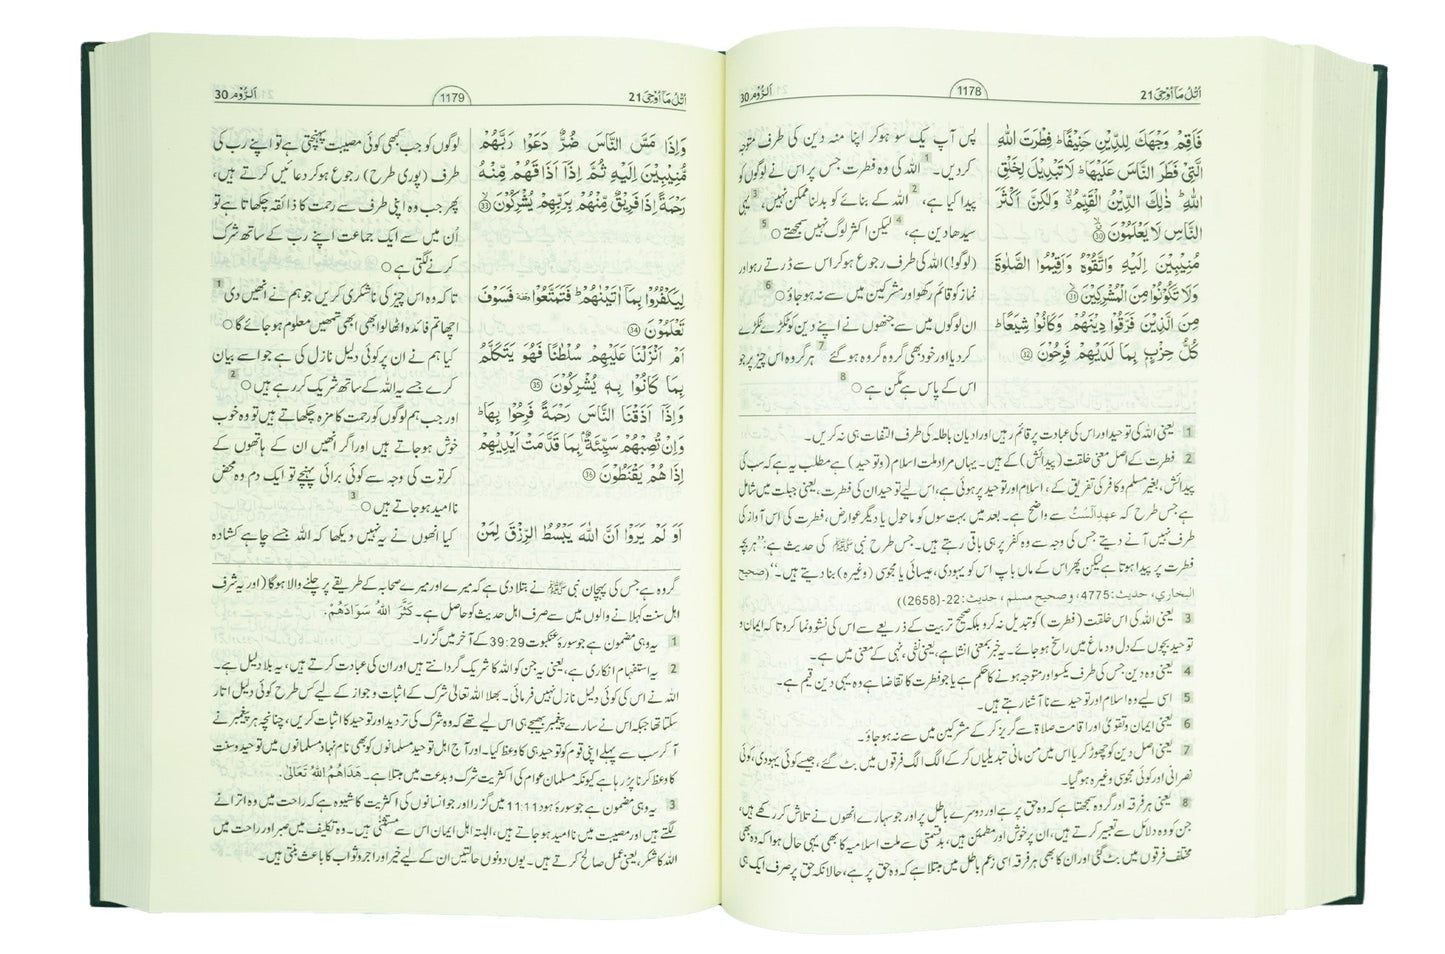 اُتْلُ مَآ اُوْحِيَ 21
1178
اَلرُّوْم 30
فَاَقِمْ وَجْهَكَ لِلدِّيْنِ حَنِيْفًا ؕ فِطْرَتَ اللّٰهِ
الَّتِيْ فَطَرَ النَّاسَ عَلَيْهَا ؕ لَا تَبْدِيْلَ لِخَلْقِ
اللّٰهِ ؕ ذٰلِكَ الدِّيْنُ الْقَيِّمُ ۙ وَلٰكِنَّ اَكْثَرَ
النَّاسِ لَا يَعْلَمُوْنَ ۙ 30
مُنِيْبِيْنَ اِلَيْهِ وَاتَّقُوْهُ وَاَقِيْمُوا الصَّلٰوةَ
وَلَا تَكُوْنُوْا مِنَ الْمُشْرِكِيْنَ ۙ 31
مِنَ الَّذِيْنَ فَرَّقُوْا دِيْنَهُمْ وَكَانُوْا شِيَعًا ؕ
كُلُّ حِزْبٍۭ بِمَا لَدَيْهِمْ فَرِحُوْنَ 32
پس آپ یک سو ہوکر اپنا منہ دین کی طرف متوجہ
کردیں۔ 1 اللہ کی وہ فطرت جس پر اس نے لوگوں کو
پیدا کیا ہے، 2 اللہ کے بنائے کو بدلنا ممکن نہیں، 3 یہی
سیدھا دین ہے، 4 لیکن اکثر لوگ نہیں سمجھتے ○ 5
(لوگو!) اللہ کی طرف رجوع ہوکر اس سے ڈرتے رہو اور
نماز کو قائم رکھو اور مشرکین میں سے نہ ہو جاؤ ○ 6
ان لوگوں میں سے جنھوں نے اپنے دین کو ٹکڑے ٹکڑے
کردیا اور خود بھی گروہ گروہ ہو گئے 7 ہر گروہ اس چیز پر جو
اس کے پاس ہے مگن ہے ○ 8
1 یعنی اللہ کی توحید اور اس کی عبادت پر قائم رہیں اور ادیان باطلہ کی طرف التفات ہی نہ کریں۔
2 فطرت کے اصل معنی خلقت (پیدائش) کے ہیں۔ یہاں مراد ملت اسلام (و توحید) ہے مطلب یہ ہے کہ سب کی
پیدائش، بغیر مسلم و کافر کی تفریق کے، اسلام اور توحید پر ہوئی ہے، اس لیے توحید ان کی فطرت، یعنی جبلت میں شامل
ہے جس طرح کہ عہدِ اَلَسْتُ سے واضح ہے۔ بعد میں بہت سوں کو ماحول یا دیگر عوارض، فطرت کی اس آواز کی
طرف نہیں آنے دیتے جس کی وجہ سے وہ کفر پر ہی باقی رہتے ہیں۔ جس طرح نبی ﷺ کی حدیث ہے: ”ہر بچہ
فطرت پر پیدا ہوتا ہے لیکن پھر اس کے ماں باپ اس کو یہودی، عیسائی یا مجوسی (وغیرہ) بنا دیتے ہیں۔“ (صحیح
البخاري، حدیث: 4775، وصحیح مسلم، حدیث: 22-(2658))
3 یعنی اللہ کی اس خلقت (فطرت) کو تبدیل نہ کرو بلکہ صحیح تربیت کے ذریعے سے اس کی نشوونما کرو تاکہ ایمان و
توحید بچوں کے دل و دماغ میں راسخ ہو جائے۔ یہ خبر بمعنی انشا ہے، یعنی نفی، نہی کے معنی میں ہے۔
4 یعنی وہ دین جس کی طرف یکسو اور متوجہ ہونے کا حکم ہے یا جو فطرت کا تقاضا ہے وہ یہی دین قیم ہے۔
5 اسی لیے وہ اسلام اور توحید سے نا آشنا رہتے ہیں۔
6 یعنی ایمان و تقویٰ اور اقامت صلاۃ سے گریز کر کے مشرکین میں سے نہ ہو جاؤ۔
7 یعنی اصل دین کو چھوڑ کر یا اس میں من مانی تبدیلیاں کر کے الگ الگ فرقوں میں بٹ گئے، جیسے کوئی یہودی، کوئی
نصرانی اور کوئی مجوسی وغیرہ ہو گیا۔
8 یعنی ہر فرقہ اور گروہ سمجھتا ہے کہ وہ حق پر ہے اور دوسرے باطل پر اور جو سہارے انھوں نے تلاش کر رکھے ہیں،
جن کو وہ دلائل سے تعبیر کرتے ہیں، ان پر خوش اور مطمئن ہیں، بدقسمتی سے ملت اسلامیہ کا بھی یہی حال ہوا کہ وہ بھی
مختلف فرقوں میں بٹ گئی اور ان کا بھی ہر فرقہ اسی زعم باطل میں مبتلا ہے کہ وہ حق پر ہے، حالانکہ حق پر صرف ایک ہی
اُتْلُ مَآ اُوْحِيَ 21
1179
اَلرُّوْم 30
وَاِذَا مَسَّ النَّاسَ ضُرٌّ دَعَوْا رَبَّهُمْ
مُّنِيْبِيْنَ اِلَيْهِ ثُمَّ اِذَآ اَذَاقَهُمْ مِّنْهُ
رَحْمَةً اِذَا فَرِيْقٌ مِّنْهُمْ بِرَبِّهِمْ يُشْرِكُوْنَ ۙ 33
لِيَكْفُرُوْا بِمَآ اٰتَيْنٰهُمْ ؕ فَتَمَتَّعُوْا ۥ فَسَوْفَ
تَعْلَمُوْنَ 34
اَمْ اَنْزَلْنَا عَلَيْهِمْ سُلْطٰنًا فَهُوَ يَتَكَلَّمُ
بِمَا كَانُوْا بِهٖ يُشْرِكُوْنَ 35
وَاِذَآ اَذَقْنَا النَّاسَ رَحْمَةً فَرِحُوْا بِهَا ؕ
وَاِنْ تُصِبْهُمْ سَيِّئَةٌۢ بِمَا قَدَّمَتْ اَيْدِيْهِمْ
اِذَا هُمْ يَقْنَطُوْنَ 36
اَوَ لَمْ يَرَوْا اَنَّ اللّٰهَ يَبْسُطُ الرِّزْقَ لِمَنْ
لوگوں کو جب کبھی کوئی مصیبت پہنچتی ہے تو اپنے رب کی
طرف (پوری طرح) رجوع ہوکر دعائیں کرتے ہیں،
پھر جب وہ اپنی طرف سے رحمت کا ذائقہ چکھاتا ہے تو
اُن میں سے ایک جماعت اپنے رب کے ساتھ شرک
کرنے لگتی ہے ○
تاکہ وہ اس چیز کی ناشکری کریں جو ہم نے انھیں دی 1
اچھا تم فائدہ اٹھا لو ابھی ابھی تمھیں معلوم ہو جائے گا ○
کیا ہم نے ان پر کوئی دلیل نازل کی ہے جو اسے بیان
کرے جسے یہ اللہ کے ساتھ شریک کر رہے ہیں ○ 2
اور جب ہم لوگوں کو رحمت کا مزہ چکھاتے ہیں تو وہ خوب
خوش ہو جاتے ہیں اور اگر انھیں ان کے ہاتھوں کے
کرتوت کی وجہ سے کوئی برائی پہنچے تو ایک دم وہ محض
نا امید ہو جاتے ہیں ○ 3
کیا انھوں نے یہ نہیں دیکھا کہ اللہ جسے چاہے کشادہ
گروہ ہے جس کی پہچان نبی ﷺ نے بتلا دی ہے کہ میرے اور میرے صحابہ کے طریقے پر چلنے والا ہوگا (اور یہ شرف
اہل سنت کہلانے والوں میں سے صرف اہل حدیث کو حاصل ہے۔ كَثَّرَ اللّٰهُ سَوَادَهُمْ۔
1 یہ وہی مضمون ہے جو سورۂ عنکبوت 39:29 کے آخر میں گزرا۔
2 یہ استفہام انکاری ہے، یعنی یہ جن کو اللہ کا شریک گردانتے ہیں اور ان کی عبادت کرتے ہیں، یہ بلا دلیل ہے۔
اللہ نے اس کی کوئی دلیل نازل نہیں فرمائی۔ بھلا اللہ تعالیٰ شرک کے اثبات و جواز کے لیے کس طرح کوئی دلیل اتار
سکتا تھا جبکہ اس نے سارے پیغمبر بھیجے ہی اس لیے تھے کہ وہ شرک کی تردید اور توحید کا اثبات کریں، چنانچہ ہر پیغمبر نے
آ کر سب سے پہلے اپنی قوم کو توحید ہی کا وعظ کیا۔ اور آج اہل توحید مسلمانوں کو بھی نام نہاد مسلمانوں میں توحید و سنت
کا وعظ کرنا پڑ رہا ہے کیونکہ مسلمان عوام کی اکثریت شرک و بدعت میں مبتلا ہے۔ هَدَاهُمُ اللّٰهُ تَعَالٰى۔
3 یہ وہی مضمون ہے جو سورۂ ہود 11:11 میں گزرا اور جو انسانوں کی اکثریت کا شیوہ ہے کہ راحت میں وہ اترانے
لگتے ہیں اور مصیبت میں نا امید ہو جاتے ہیں، البتہ اہل ایمان اس سے مستثنیٰ ہیں۔ وہ تکلیف میں صبر اور راحت میں
اللہ کا شکر، یعنی عمل صالح کرتے ہیں۔ یوں دونوں حالتیں ان کے لیے خیر اور اجر و ثواب کا باعث بنتی ہیں۔